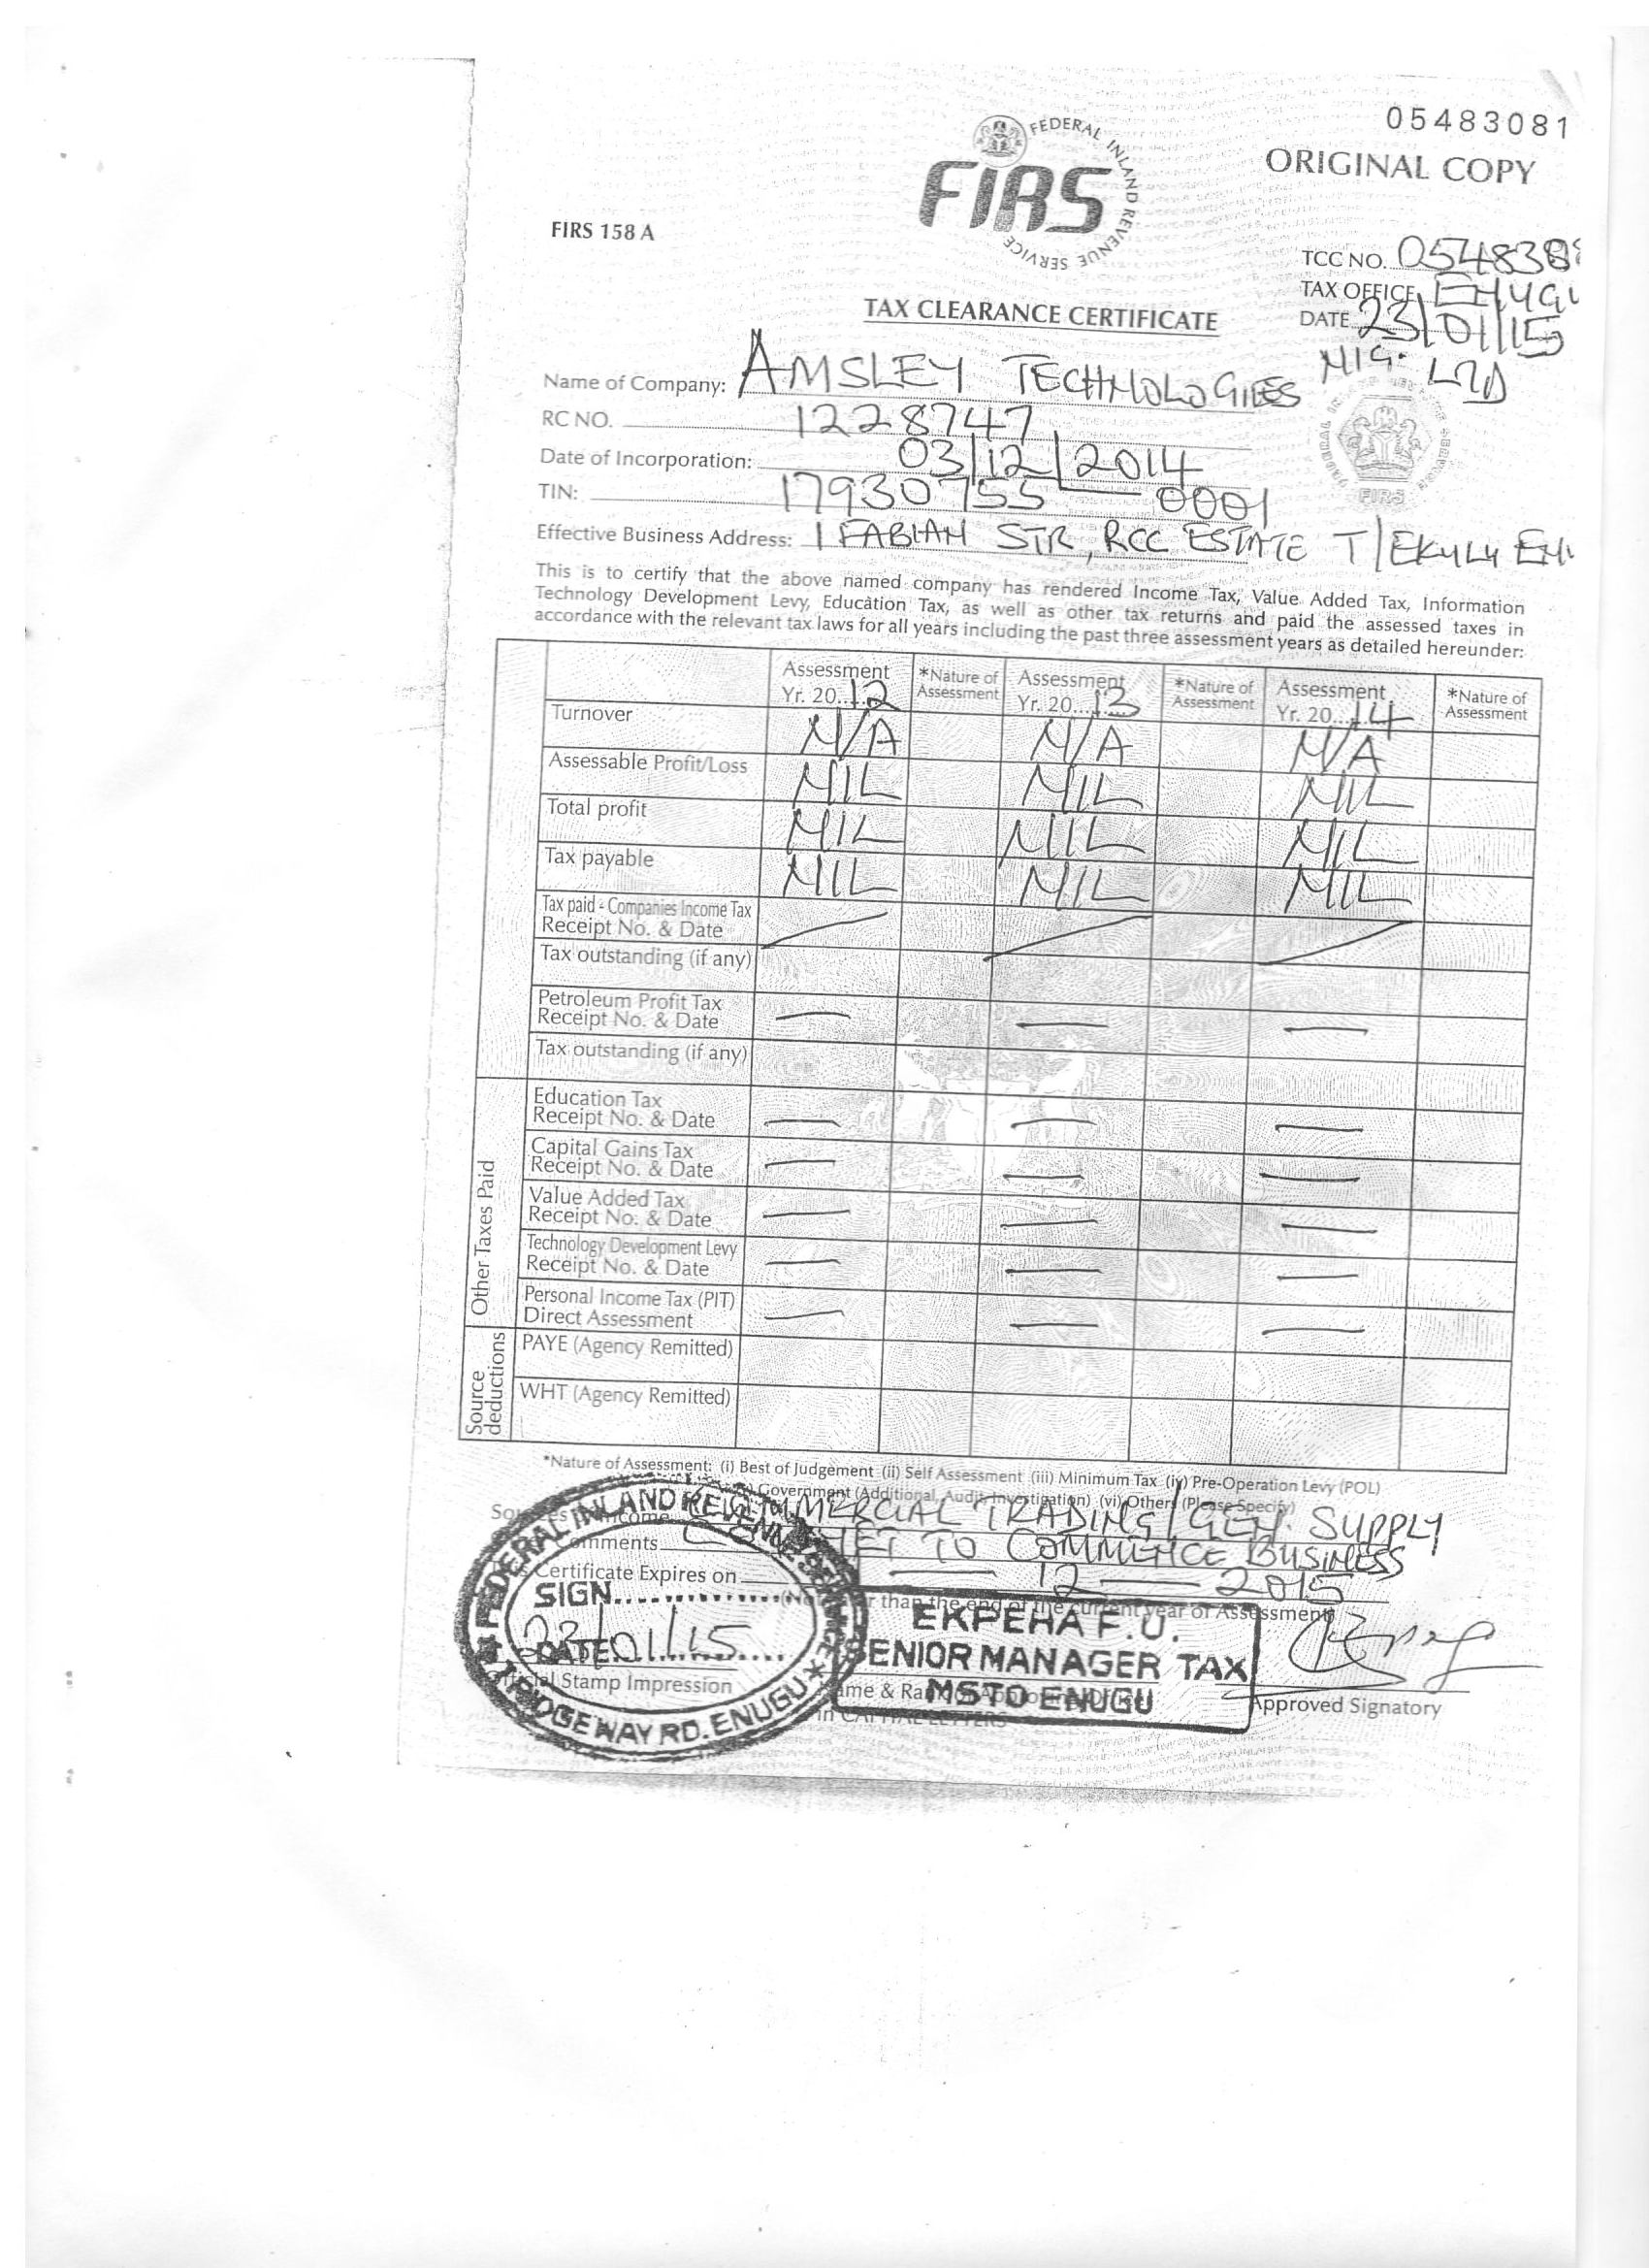 05483081
ORIGINAL COPY
FEDERAL INLAND REVENUE SERVICE
FIRS
FIRS 158 A
TCC NO.
TAX OFFICE
TAX CLEARANCE CERTIFICATE
DATE 23/01/15
Name of Company: AMSLEY TECHNOLOGIES NIG. LTD
RC NO. 1228747
Date of Incorporation: 03/12/2014
TIN: 17930755 — 0001
FIRS
Effective Business Address: 1 FABIAN STR, RCC ESTATE T/EKULU
This is to certify that the above named company has rendered Income Tax, Value Added Tax, Information
Technology Development Levy, Education Tax, as well as other tax returns and paid the assessed taxes in
accordance with the relevant tax laws for all years including the past three assessment years as detailed hereunder:
Assessment Yr. 20..12 *Nature of Assessment Assessment Yr. 20...13 *Nature of Assessment Assessment Yr. 20...14 *Nature of Assessment
Turnover N/A N/A N/A
Assessable Profit/Loss NIL NIL NIL
Total profit NIL NIL NIL
Tax payable NIL NIL NIL
Tax paid - Companies Income Tax
Receipt No. & Date
Tax outstanding (if any)
Petroleum Profit Tax
Receipt No. & Date — — —
Tax outstanding (if any)
Other Taxes Paid
Education Tax
Receipt No. & Date — — —
Capital Gains Tax
Receipt No. & Date — — —
Value Added Tax
Receipt No. & Date — — —
Technology Development Levy
Receipt No. & Date — — —
Personal Income Tax (PIT)
Direct Assessment — — —
Source deductions
PAYE (Agency Remitted)
WHT (Agency Remitted)
*Nature of Assessment: (i) Best of Judgement (ii) Self Assessment (iii) Minimum Tax (iv) Pre-Operation Levy (POL)
Government (Additional, Audit, Investigation) (vi) Others (Please Specify)
COMMERCIAL TRADING/GEN. SUPPLY
YET TO COMMENCE BUSINESS
Certificate Expires on — 12 — 2015
than the end of the current year of Assessment)
FEDERAL INLAND REVENUE SERVICE
SIGN
DATE 23/01/15
RIDGEWAY RD. ENUGU
EKPEHA F.U.
SENIOR MANAGER TAX
MSTO ENUGU
Stamp Impression
Approved Signatory
in CAPITAL LETTERS